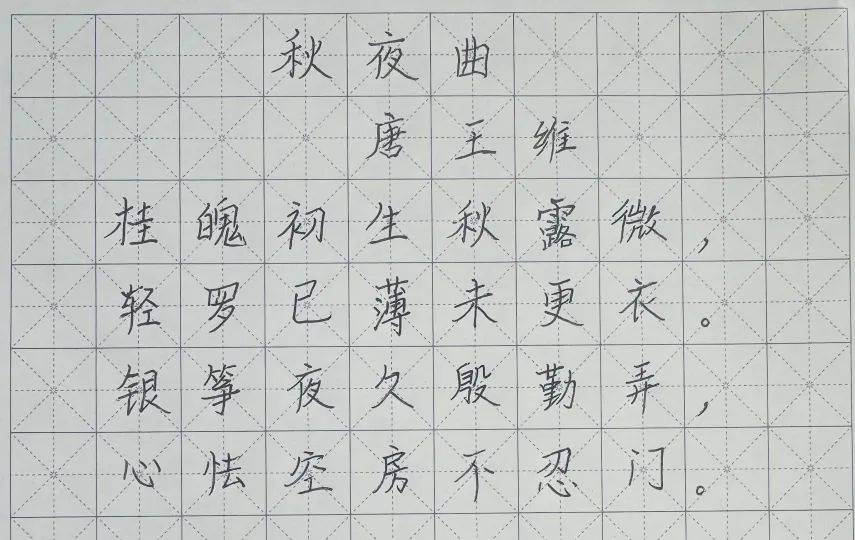 秋夜曲
唐王维
桂魄初生秋露微，
轻罗已薄未更衣。
银筝夜久殷勤弄，
心怯空房不忍门。